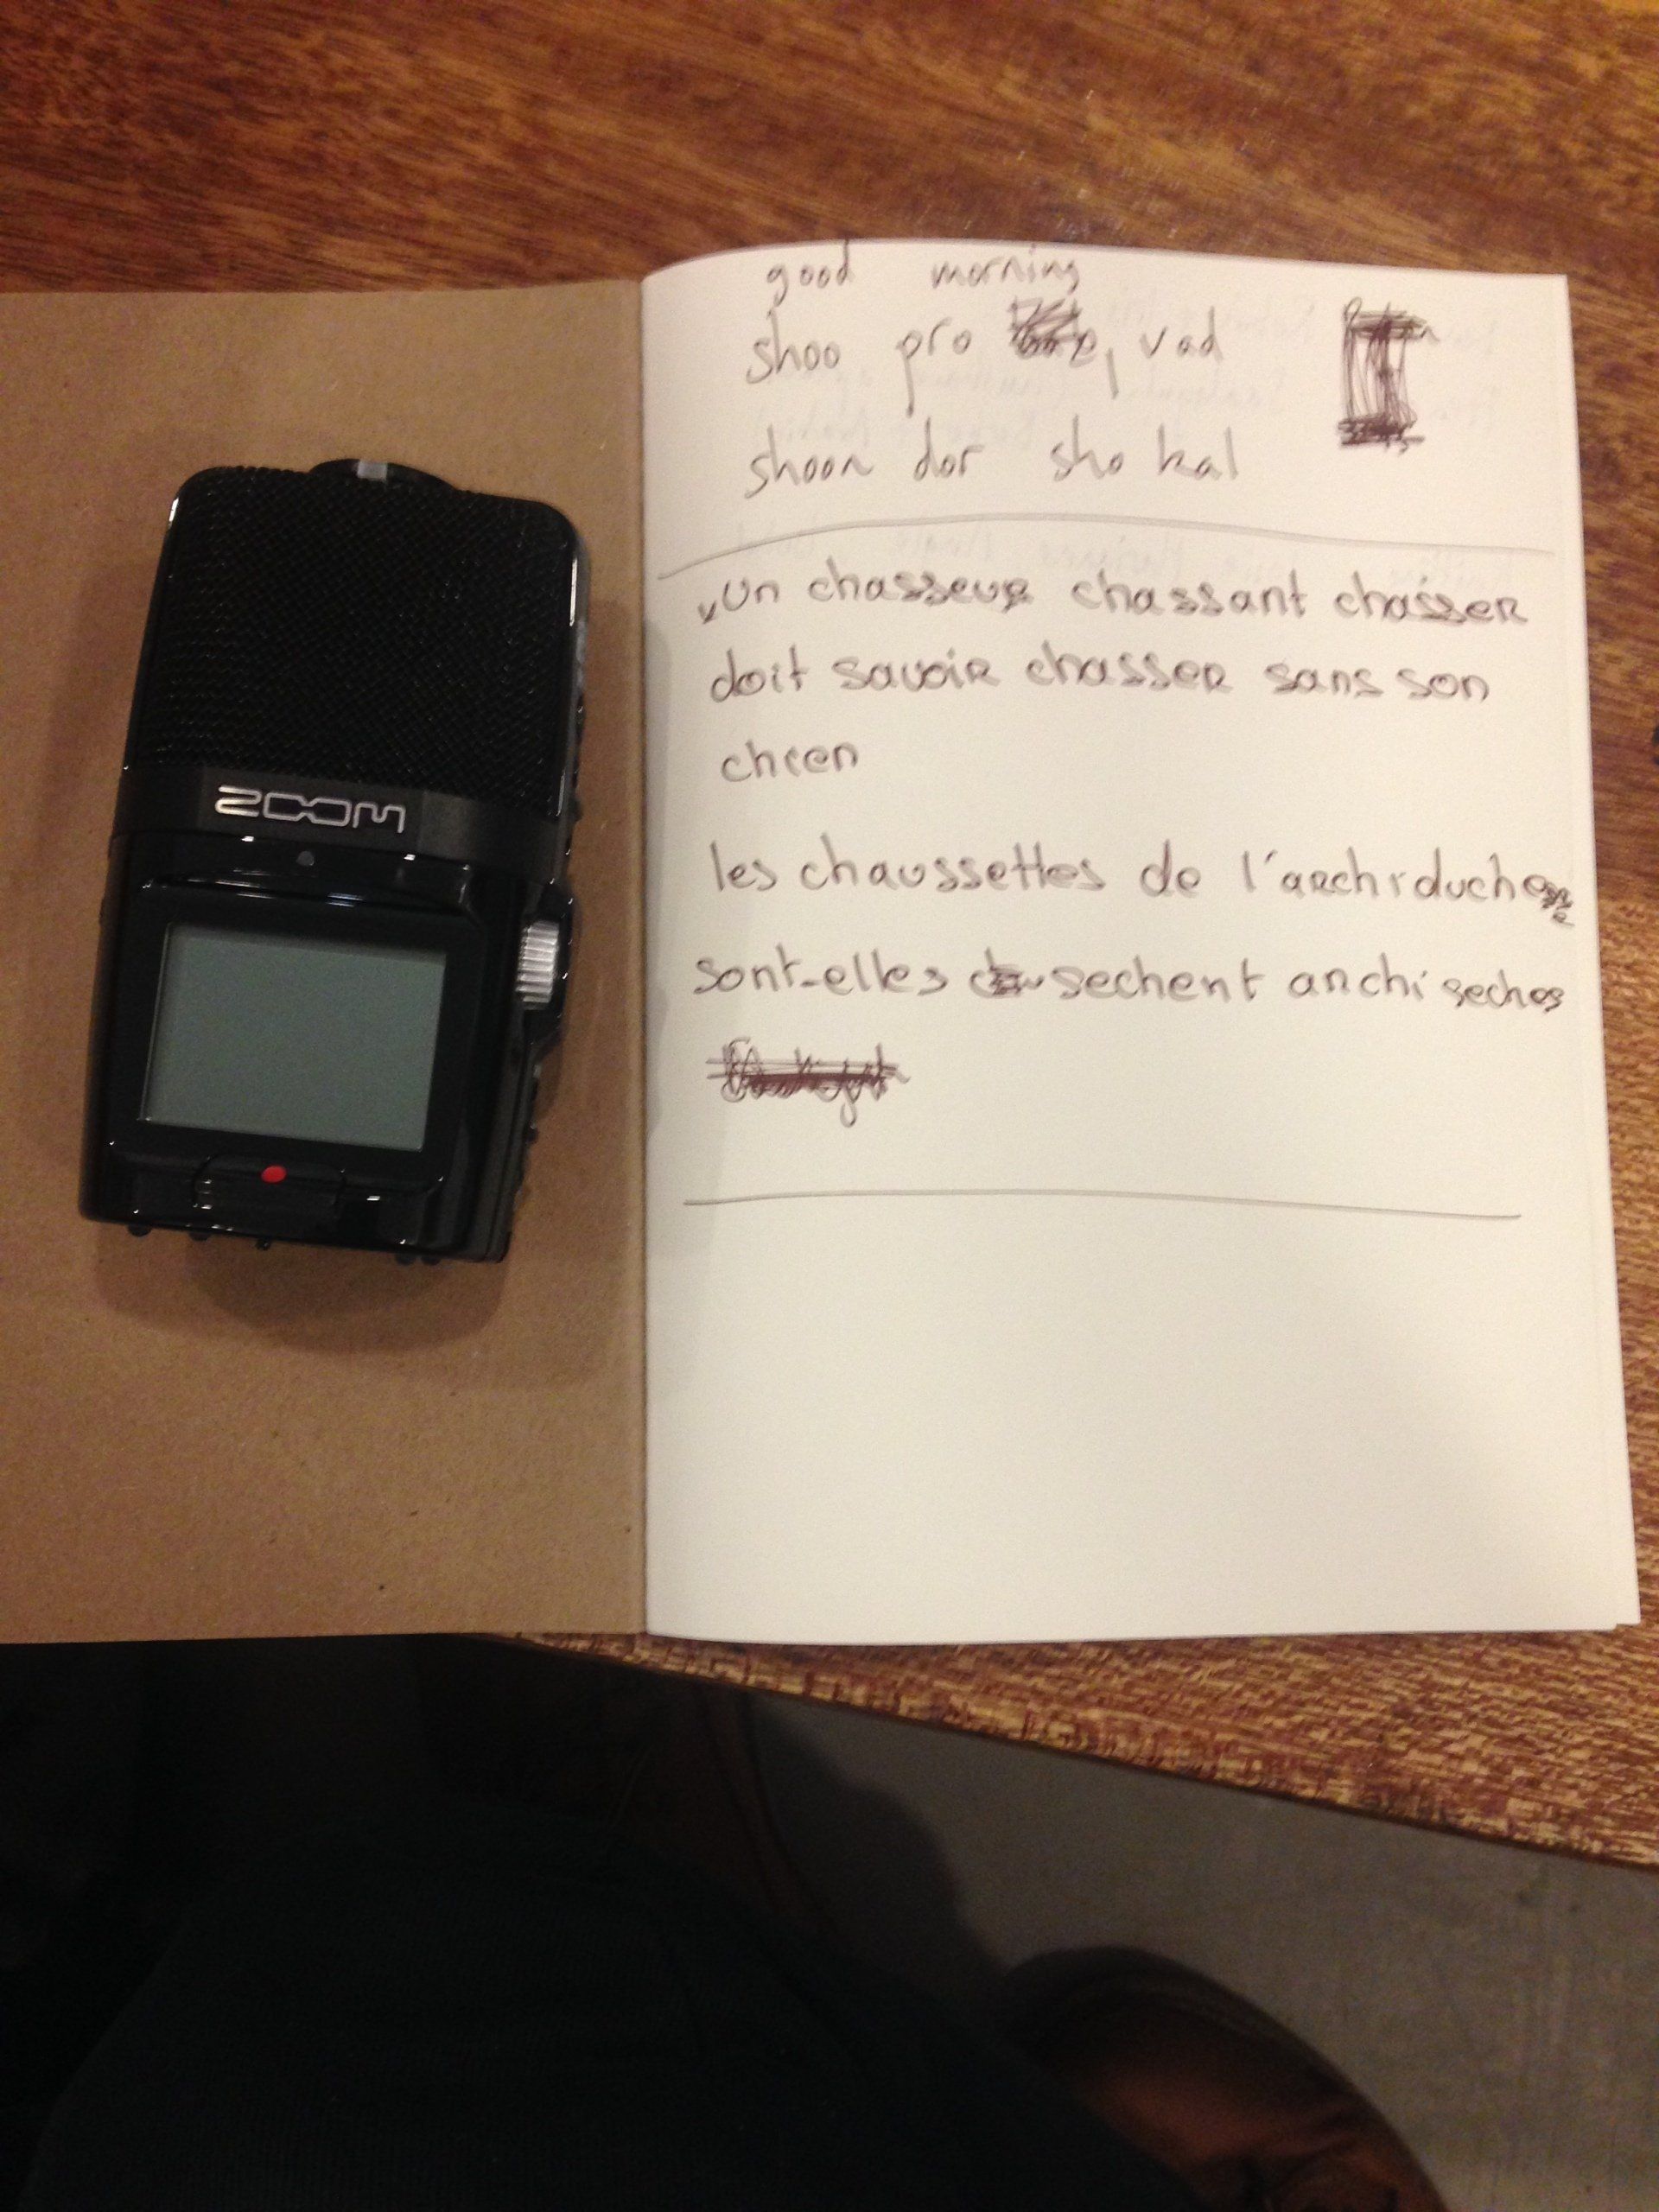 ZOOM
good morning
shoo pro vad
shoon dor sho kal
Un chasseur chassant chasser
doit savoir chasser sans son
chien
les chaussettes de l'archiduchesse
sont-elles sechent archi seches